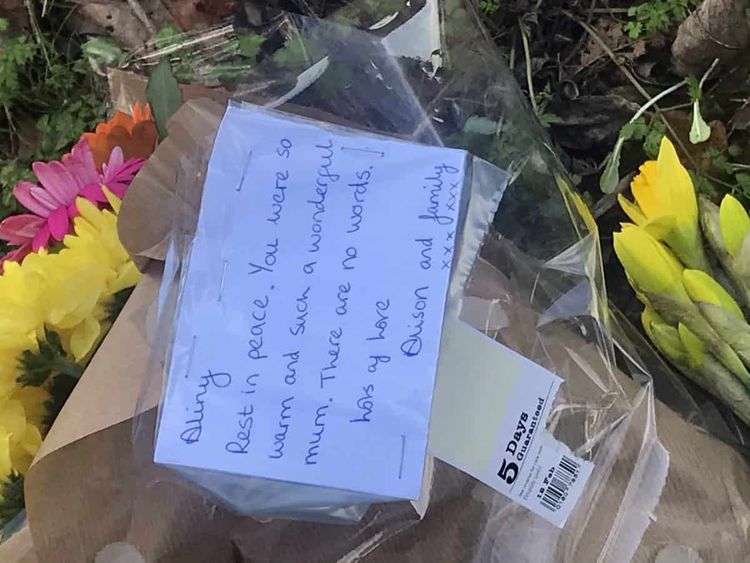 Rest in peace. You were so
warm and such a wonderful
mum. There are no words.
lots of love
Alison and family
xxx xxx
5 Days
Guaranteed
15 Feb